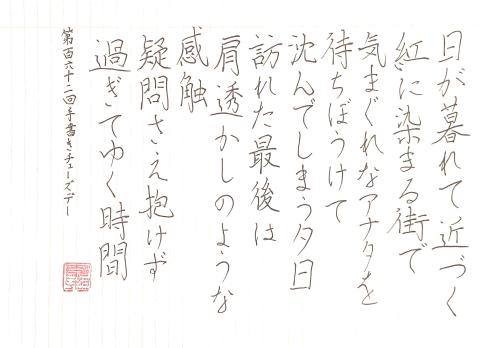 日が暮れて近づく
紅に染まる街で
気まぐれなアナタを
待ちぼうけて
沈んでしまう夕日
訪れた最後は
肩透かしのような
感触
疑問さえ抱けず
過ぎてゆく時間
第百六十二回手書きチューズデー